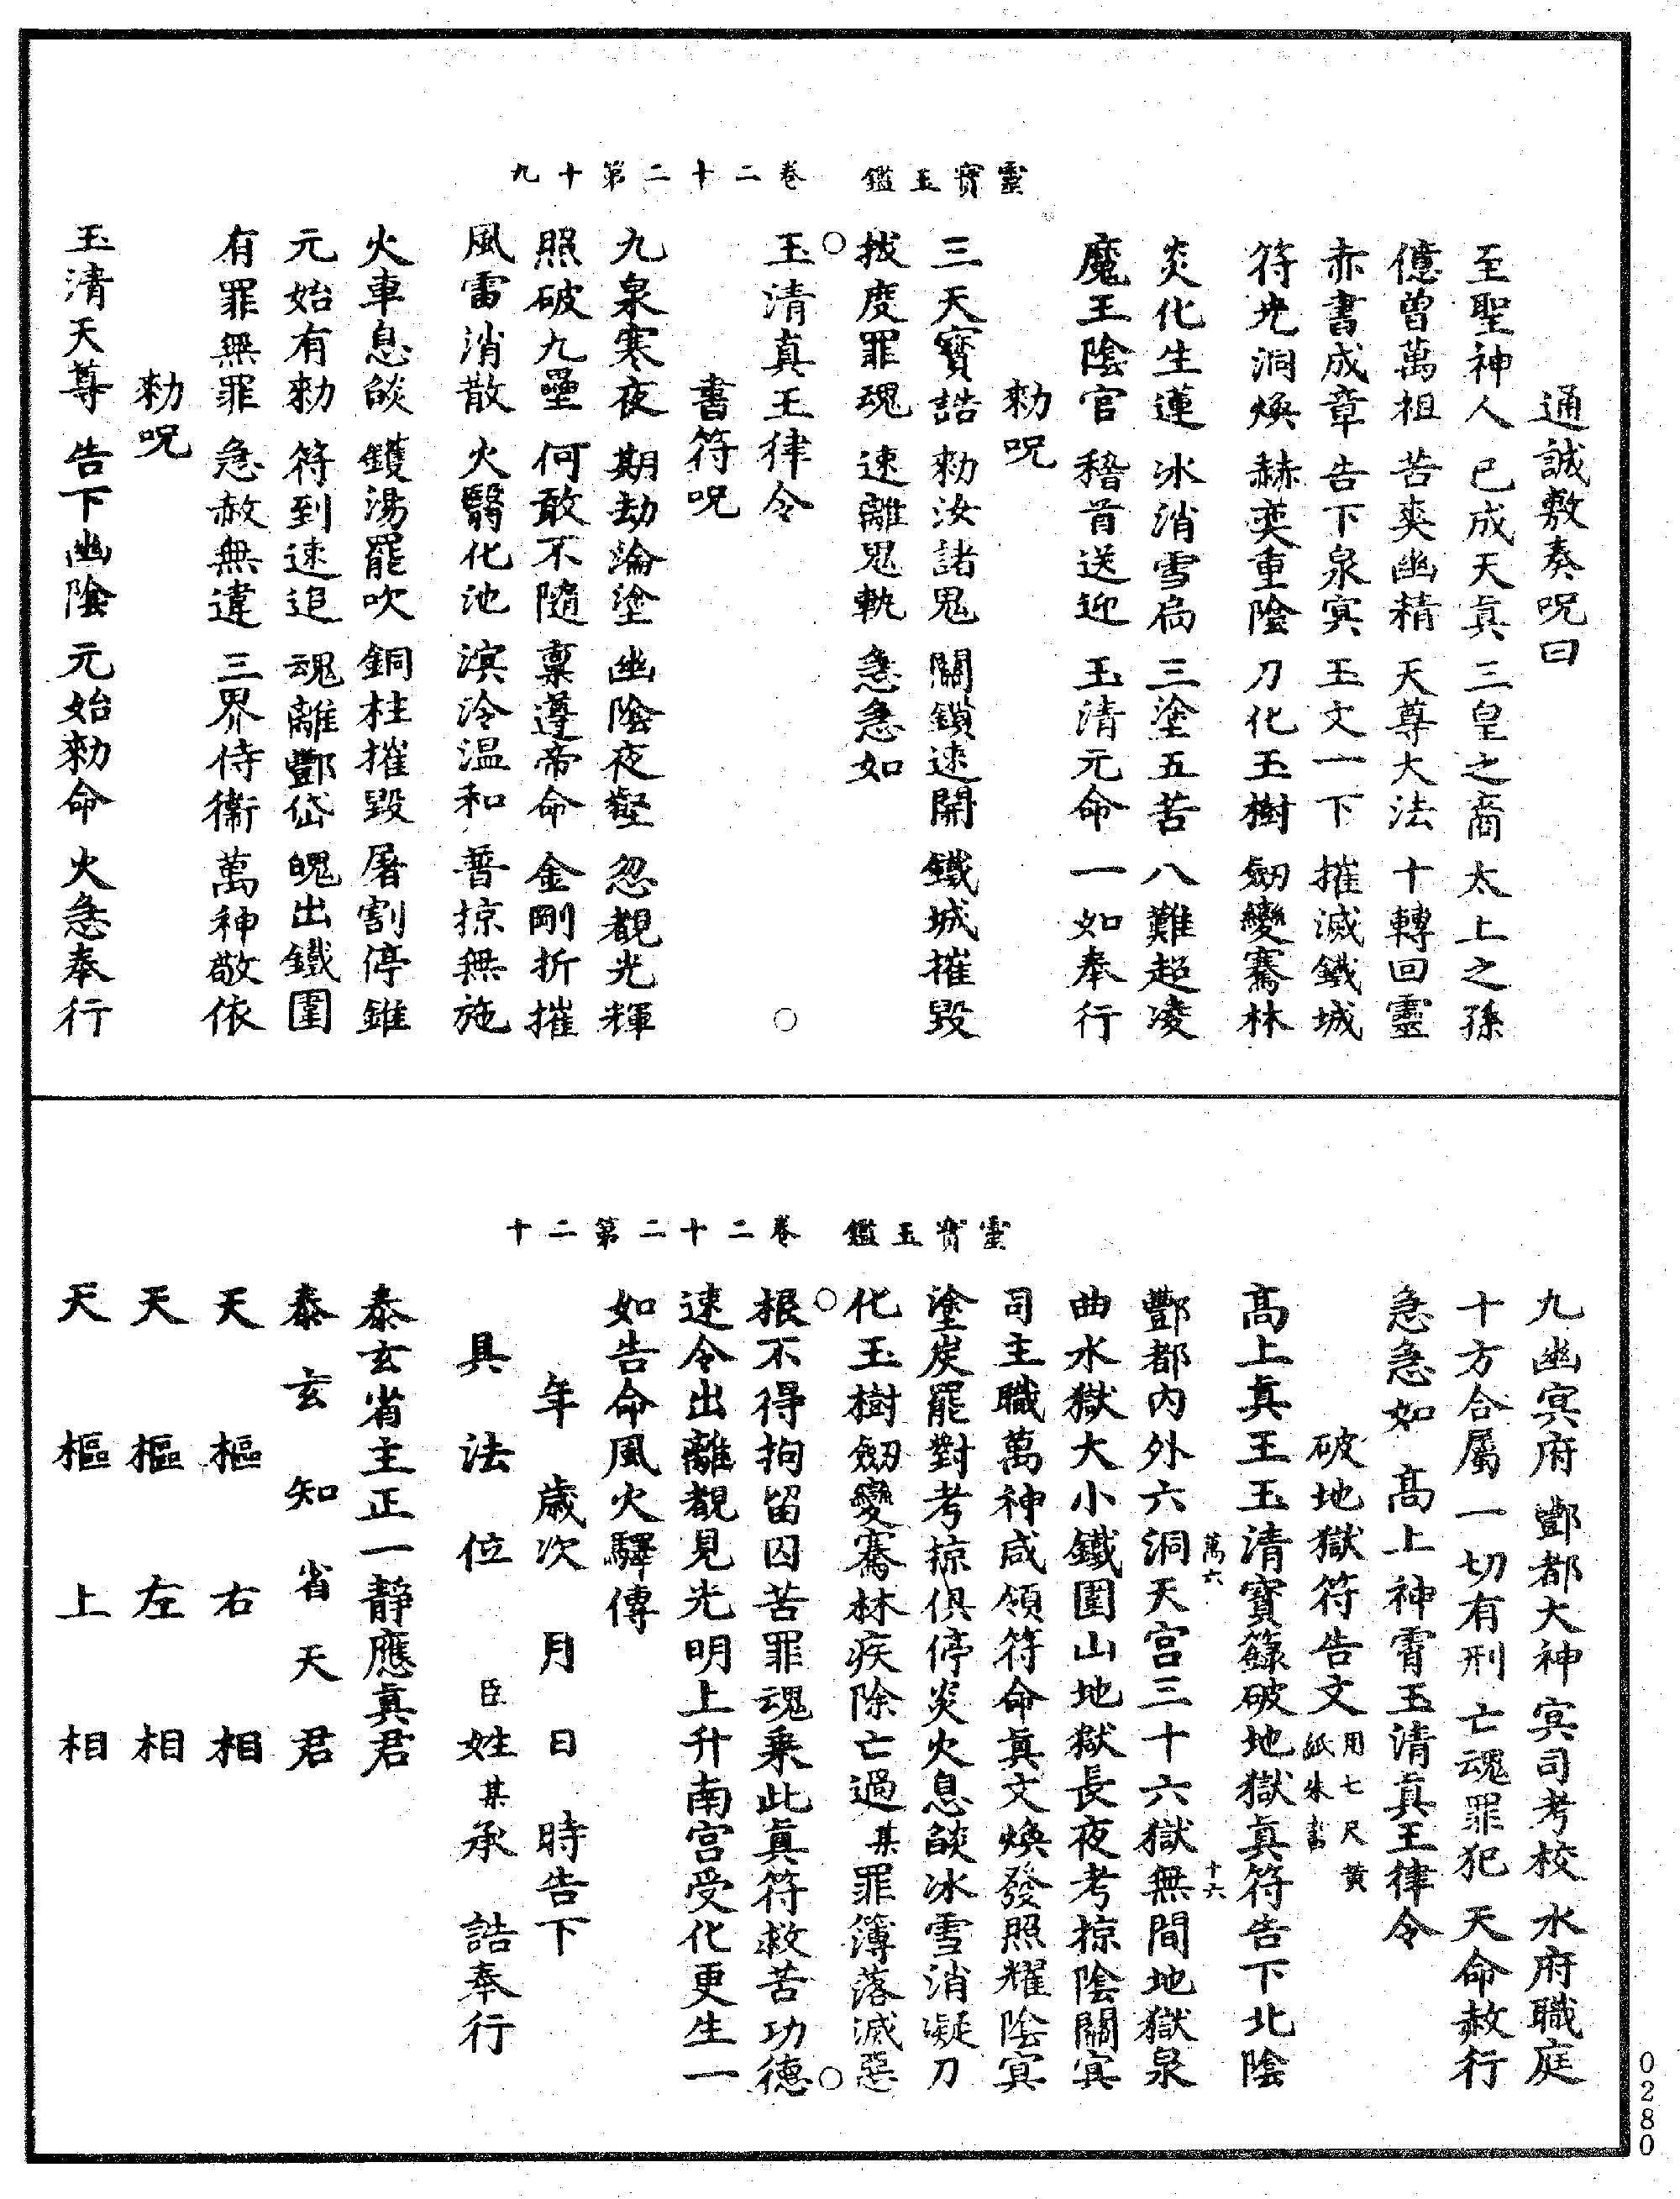 靈寶玉鑑　卷二十二第十九
通誠敷奏呪曰
至聖神人　已成天真　三皇之裔　太上之孫
億曾萬祖　苦爽幽精　天尊大法　十轉回靈
赤書成章　告下泉冥　玉文一下　摧滅鐵城
符光洞煥　赫奕重陰　刀化玉樹　劒變騫林
炎化生蓮　冰消雪扃　三塗五苦　八難超凌
魔王陰官　稽首送迎　玉清元命　一如奉行
勑呪
三天寶誥　勑汝諸鬼　關鎖速開　鐵城摧毀
拔度罪魂　速離鬼軌　急急如
○玉清真王律令○
書符呪
九泉寒夜　期劫淪塗　幽陰夜壑　忽覩光輝
照破九壘　何敢不隨　稟遵帝命　金剛折摧
風雷消散　火翳化池　溟泠温和　普掠無施
火車息燄　鑊湯罷吹　銅柱摧毀　屠割停錐
元始有勑　符到速追　魂離酆岱　魄出鐵圍
有罪無罪　急赦無違　三界侍衞　萬神敬依
勑呪
玉清天尊　告下幽陰　元始勑命　火急奉行
靈寶玉鑑　卷二十二第二十
九幽冥府　酆都大神　冥司考校　水府職庭
十方合屬　一切有刑　亡魂罪犯　天命赦行
急急如　高上神霄玉清真王律令
破地獄符告文用七尺黃紙朱書
高上真王玉清寶籙破地獄真符告下北陰
酆都內外六洞天宫三十六獄無間地獄泉
萬六　十六
曲水獄大小鐵圍山地獄長夜考掠陰關冥
司主職萬神咸領符命真文煥發照耀陰冥
塗炭罷對考掠俱停炎火息燄冰雪消凝刀
化玉樹劒變騫林疾除亡過某罪簿落滅惡
○根不得拘留囚苦罪魂乘此真符救苦功德○
速令出離覩見光明上升南宫受化更生一
如告命風火驛傳
年　歲次　月　日　時告下
具　法　位　臣姓某承　誥奉行
泰玄省主正一靜應真君
泰玄知省天君
天樞右相
天樞左相
天樞上相
0280